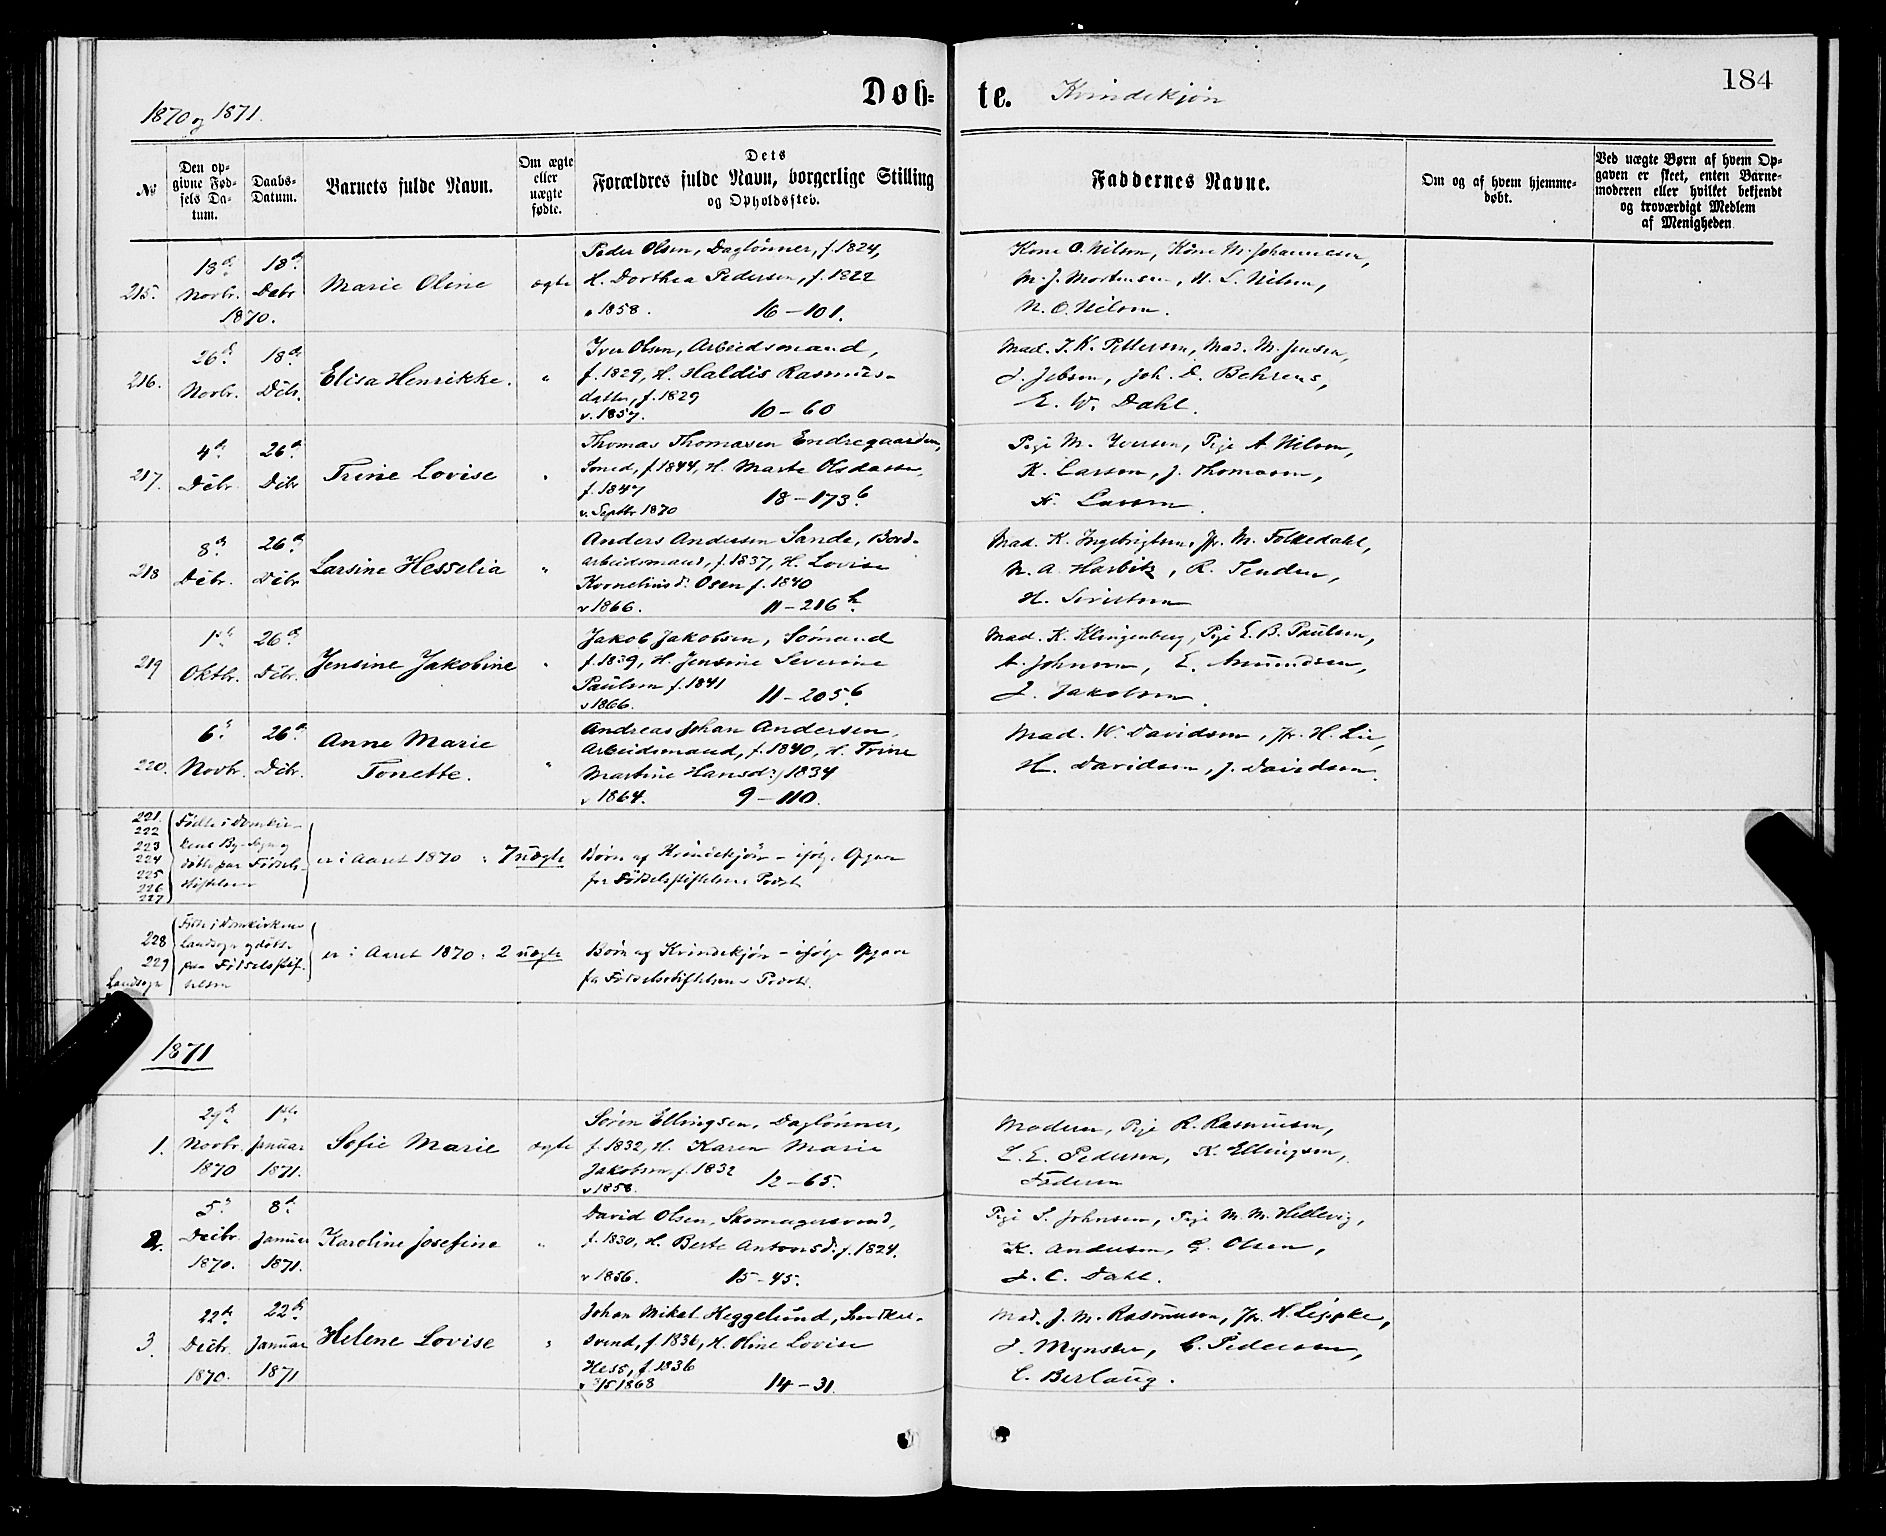 184
Døb= te. Kvindekjøn
1870 og 1871.
No
Den op-
givne Fød-
sels Da-
tum.
Daabs-
Datum.
Barnets fulde Navn.
Om ægte
eller
uægte
fødte.
Dets
Forældres fulde Navn, borgerlige Stilling
og Opholdssted.
Faddernes Navne.
Om og af hvem hjemme-
døbt.
Ved uægte Børn af hvem Op-
gaven er skeet, enten Barne-
moderen eller hvilket bekjendt
og troværdigt Medlem
af Menigheden
215.
Novbr.
18de
Debr
1870.
Marie Oline
ægte
Peder Olsen, Daglønner, f. 1824,
H. Dorthea Pedersen, f. 1822
v 1858. 16-101.
Kone O. Nilsen, Kone M. Johannesen,
M. J. Mortensen, M. L. Nilsen,
N. O. Nilsen.
216.
26de
Novbr.
18de
Debr.
Elisa Henrikke.
"
Iver Olsen, Arbeidsmand,
f. 1829, H. Haldis Rasmus-
datter, f. 1829
v. 1857. 10-60
Mad. I. K. Pettersen, Mad. M. Jensen,
J. Jebsen, Joh. D. Behrens,
E. W. Dahl.
217.
4de
Debr.
26de
Debr
Trine Lovise
"
Thomas Thomasen Endregaarden,
Smed, f. 1844, H. Marte Olsdatter
f. 1847
v. Septbr 1870 18-173 b
Pige M. Iversen, Pige A. Nilsen,
K. Larsen, J. Thomasen,
K. Larsen.
218
8de
Debr.
26de
Debr
Larsine Hesselia
"
Anders Andersen Sande, Bord-
arbeidsmand, f. 1837, H. Lovise
Kornelius d. Osen f. 1840
v 1866. 11-216 b.
Mad. K. Ingebrigtsen, Jfr. M. Folkedahl,
N. A. Harbitz, R. Tenden,
H. Sivertsen
219
1ste
Oktbr.
26de
Debr.
Jensine Jakobine
"
Jakob Jakobsen, Sømand
f. 1839, H. Jensine Severine
Paulsen f. 1841
v 1866. 11-205 b
Mad. K. Klingenberg, Pige E. B. Paulsen,
A. Johnsen, E. Amundsen,
J. Jakobsen.
220.
6te
Novbr.
26de
Debr.
Anne Marie
Tonette.
"
Andreas Johan Andersen,
Arbeidsmand, f. 1840, H. Trine
Martine Hansd. f 1834
v 1864. 9-110.
Mad. W. Davidsen, Jfr. H. Lie,
H. Davidsen, J. Davidsen.
221.
222
223
224
225
226
227
Fødte i Domkir-
kens By-Sogn og
døbte paa Fødsels-
stiftelsen
er i Aaret 1870 : 7 uægte
Børn af Kvindekjøn - ifølge Opgave
fra Fødselsstiftelsens Præst
228
229
Landsogn
Fødte i Domkirkens
Landsogn og døbte
paa Fødselsstif-
telsen
er i Aaret 1870 : 2 uægte
Børn af Kvindekjøn - ifølge Opgave
fra Fødselsstiftelsens Præst.
1871
1.
29de
Novbr.
1870
1ste
Januar
1871.
Sofie Marie
ægte
Søren Ellingsen, Daglønner,
f. 1832, H. Karen Marie
Jakobsen, f. 1832
v 1858. 12-65.
Moderen, Pige R. Rasmusen,
L. E. Pedersen, K. Ellingsen,
Faderen
2.
5te
Decbr.
1870.
8de
Januar
1871.
Karoline Josefine
"
David Olsen, Skomagersvend,
f. 1830, H. Berte Antonsd. f. 1824.
v 1856. 15-45.
Pige S. Johnsen, Pige M. M. Hedevig,
K. Andersen, G. Olsen,
J. C. Dahl.
3.
22de
Decbr.
1870.
22de
Januar
1871
Helene Lovise
"
Johan Mikal Heggelund, Snedker-
svend, f. 1836, H. Oline Lovise
Hess, f. 1836
1868 14-31.
Mad. J. M. Rasmussen, Jfr. H. Liepke,
J. Mynster, C. Pedersen,
C. Berlaug.